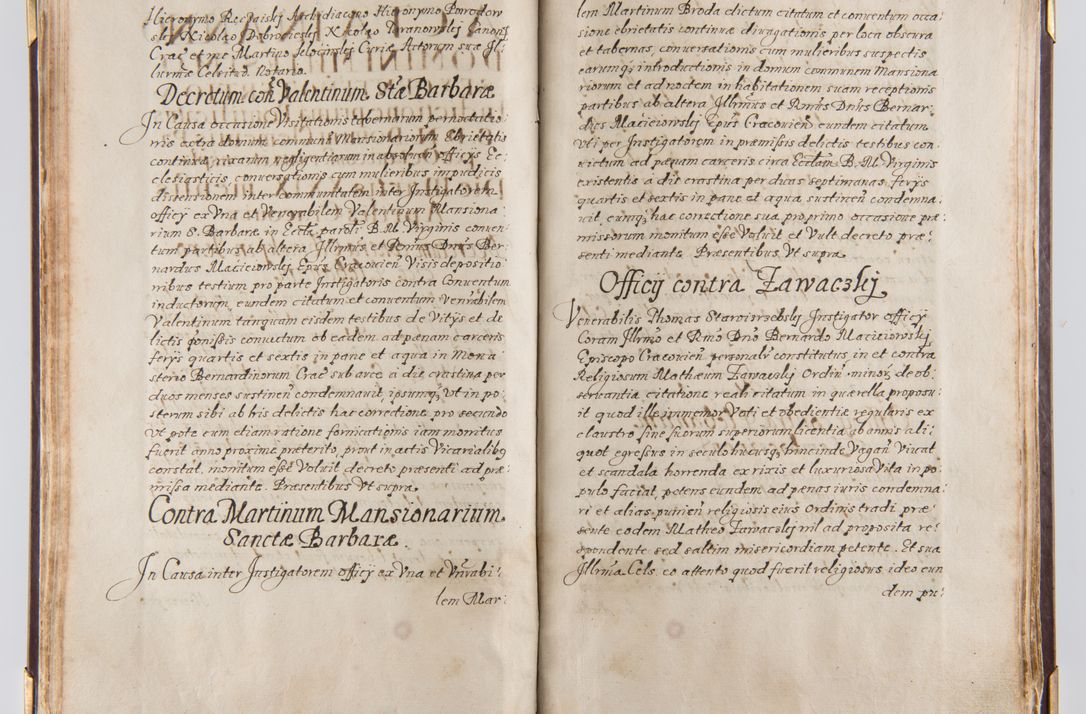 Hieronymo Recżaiski Archidiacono Hieronymo Porodow
skij Nicolao Dobrocieskij Nicolao Doranowskij Canonj
Crac et me Martino Jelocinskij Curiæ Actorum suæ Il
lurmæ Celsitud. Notario.
Decretum con Valentinum Stæ Barbaræ
In Causa occasione Visitationis tabernarum pernoctatio
nis extra domum communem Mansionariorum Ebrietatis
continuæ rixarum negligentiarum in absoluen officijs Ec
clesiasticis, conuersationis cum mulieribus impudicis
distensionem inter communitatem inter Instigatorem
officij ex Vna et Venerabilem Valentinum Mansiona
rium S. Barbaræ in Eccla paroli B. M. Virginis conuen
tum partibus ab altera Illrmus et Rmus Dnus Ber
nardus Macieiowskij Epus Cracouien Visis depositio
nibus testium pro parte Instigatoris contra Conuentum
inductorum, eundem citatum et conuentum Venrabilem
Valentinum tanquam eisdem testibus de Vitijs et de
lictis pmissis conuictum ob eadem ad pænam carceris
ferijs quartis et sextis in pane et aqua in Mona
sterio Bernardinorum Crac sub arce a die crastina per
duos menses sustinen condemnauit, ipsumq; Vt in po
sterum sibi ab his delictis hac correctione pro secundo
Vt pote cum etiam ratione fornicationis iam monitus
fuerit anno proxime præterito, prout in actis Vicarialibq
constat, monitum esse Voluit decreto præsenti ad præ
missa mediante. Præsentibus Vt supra
Contra Martinum Mansionarium
Sanctæ Barbaræ.
In Causa inter Instigatorem officij ex Vna et Vnrabi
lem Mar
lem Martinum Broda dictum citatum et conuentum occa
sione ebrietatis continuæ diuagationis per loca obscura
et tabernas, conuersationis cum mulieribus suspectis
earumq; introductionis in domum communem Mansiona
riorum et ad noctem in habitationem suam receptionis
partibus ab altera Illrmus et Rmus Dnus Bernar
dus Macieiowskij Epus Cracouien eundem citatum
Vti per Instigatorem in præmissis delictis testibus con
uictum ad pænam carceris circa Ecclam B. M. Virginis
existentis a die crastina per duas septimanas ferijs
quartis et sextis in pane et aqua sustinen condemna
uit, eumq; hac correctione sua pro primo occasione præ
missorum monitum esse Voluit et Vult decreto præ
senti mediante Præsentibus Vt supra
Officij contra Zawaczkij
Venerabilis Thomas Starowrzebskj Instigator officij
Coram Illrmo et Rmo Dno Bernardo Macieiowskij
Episcopo Cracouien personalr constitutus, in et contra
Religiosum Mathæum Zawaczkij Ordin minor de ob
seruantia citatione reali citatum in quærella proposu
it quod ille immemor Voti et obedientiæ regularis ex
claustro sine suorum superiorum licentia ab annis ali
quot egressus in seculo hucusq; hincinde Vagan Viuat
et scandala horrenda ex rixis et luxuriosa Vita in po
pulo faciat, petens eundem ad pænas iuris condemna
ri et alias punien religiosis eius Ordinis tradi præ
sente eodem Matheo Zawaczkij nil ad proposita re
spondente sed saltim misericordiam petente. Et sua
Illrma Cels. eo attento quod fuerit religiosus ideo eun
dem pu